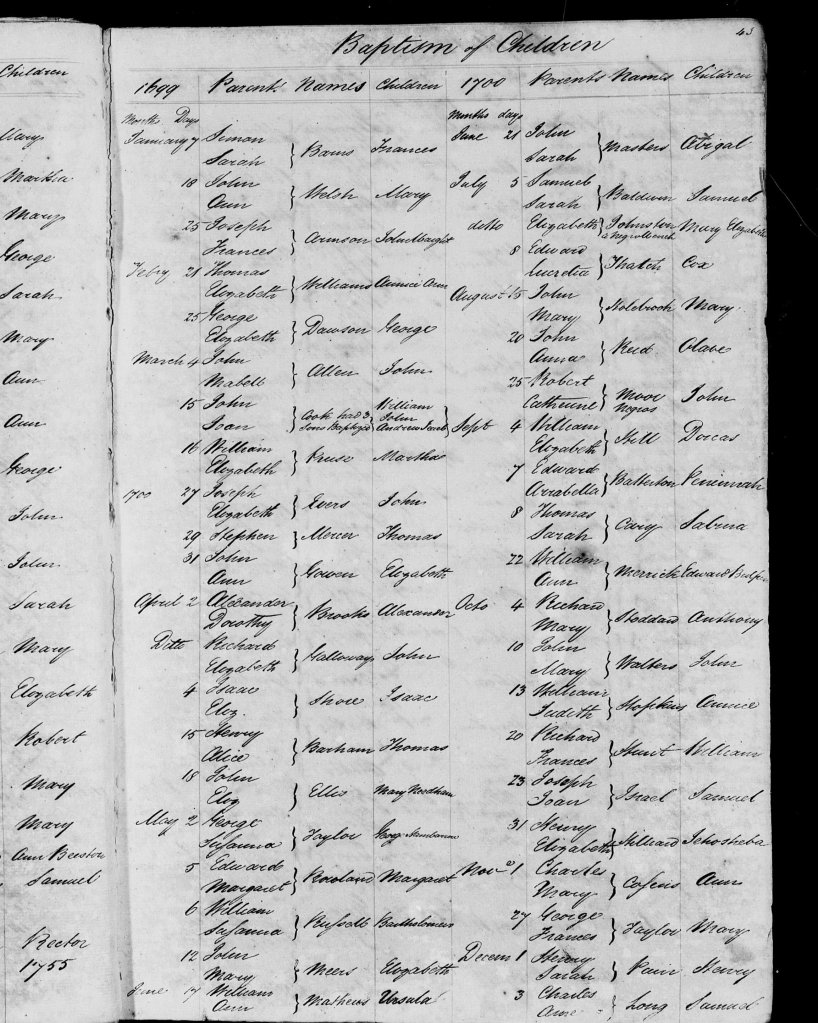 43
Baptism of Children
Children
1699 Parents Names Children 1700 Parents Names Children
Months Days
Months days
Mary
Martha
Mary
George
Sarah
Mary
Ann
Ann
George
John
John
Sarah
Mary
Elizabeth
Robert
Mary
Mary
Ann Beeston
Samuel
Rector
1755
January 7 Simon
Sarah } Barns Frances
18 John
Ann } Welsh Mary
25 Joseph
Frances } Armson John
Febry 21 Thomas
Elizabeth } Williams Ann
25 George
Elizabeth } Dawson George
March 4 John
Mabell } Allen John
15 John
Joan } Cook had 3
Sons Baptized
William
John
Andrew Jacob
16 William
Elizabeth } Kruse Martha
1700 27 Joseph
Elizabeth } Evers John
29 Stephen } Mercer Thomas
31 John
Ann } Gowen Elizabeth
April 2 Alexander
Dorothy } Brooks Alexander
Ditto Richard
Elizabeth } Galloway John
4 Isaac
Eliz. } Shore Isaac
15 Henry
Alice } Barham Thomas
18 John
Eliz } Ellis Mary Needham
May 2 George
Susanna } Taylor George
5 Edward
Margaret } Rowland Margaret
6 William
Susanna } Russell Bartholomew
12 John
Mary } Meers Elizabeth
June 17 William
Ann } Mathews Ursula
June 21 John
Sarah } Masters Abigal
July 5 Samuel
Sarah } Baldwin Samuel
ditto Elizabeth } Johnston Mary Elizabeth
a Negro Wench
8 Edward
Lucretia } Thatch Cox
August 15 John
Mary } Holebrook Mary
20 John
Anna } Reid Olave
25 Robert
Catherine } Moor John
Negros
Sept 4 William
Elizabeth } Hill Dorcas
7 Edward
Arrabella } Batterton Peninnah
8 Thomas
Sarah } Cary Sabina
22 William
Ann } Merrick Edward
Octo 4 Richard
Mary } Stoddard Anthony
10 John
Mary } Walters John
13 William
Judith } Hopkins Annice
20 Richard
Frances } Hunt William
23 Joseph
Joan } Israel Samuel
31 Henry
Elizabeth } Hilliard Jehosheba
Nov 1 Charles
Mary } Cosens Ann
27 George
Frances } Taylor Mary
Decem 1 Henry
Sarah } Pain Henry
3 Charles
Ame } Long Samuel